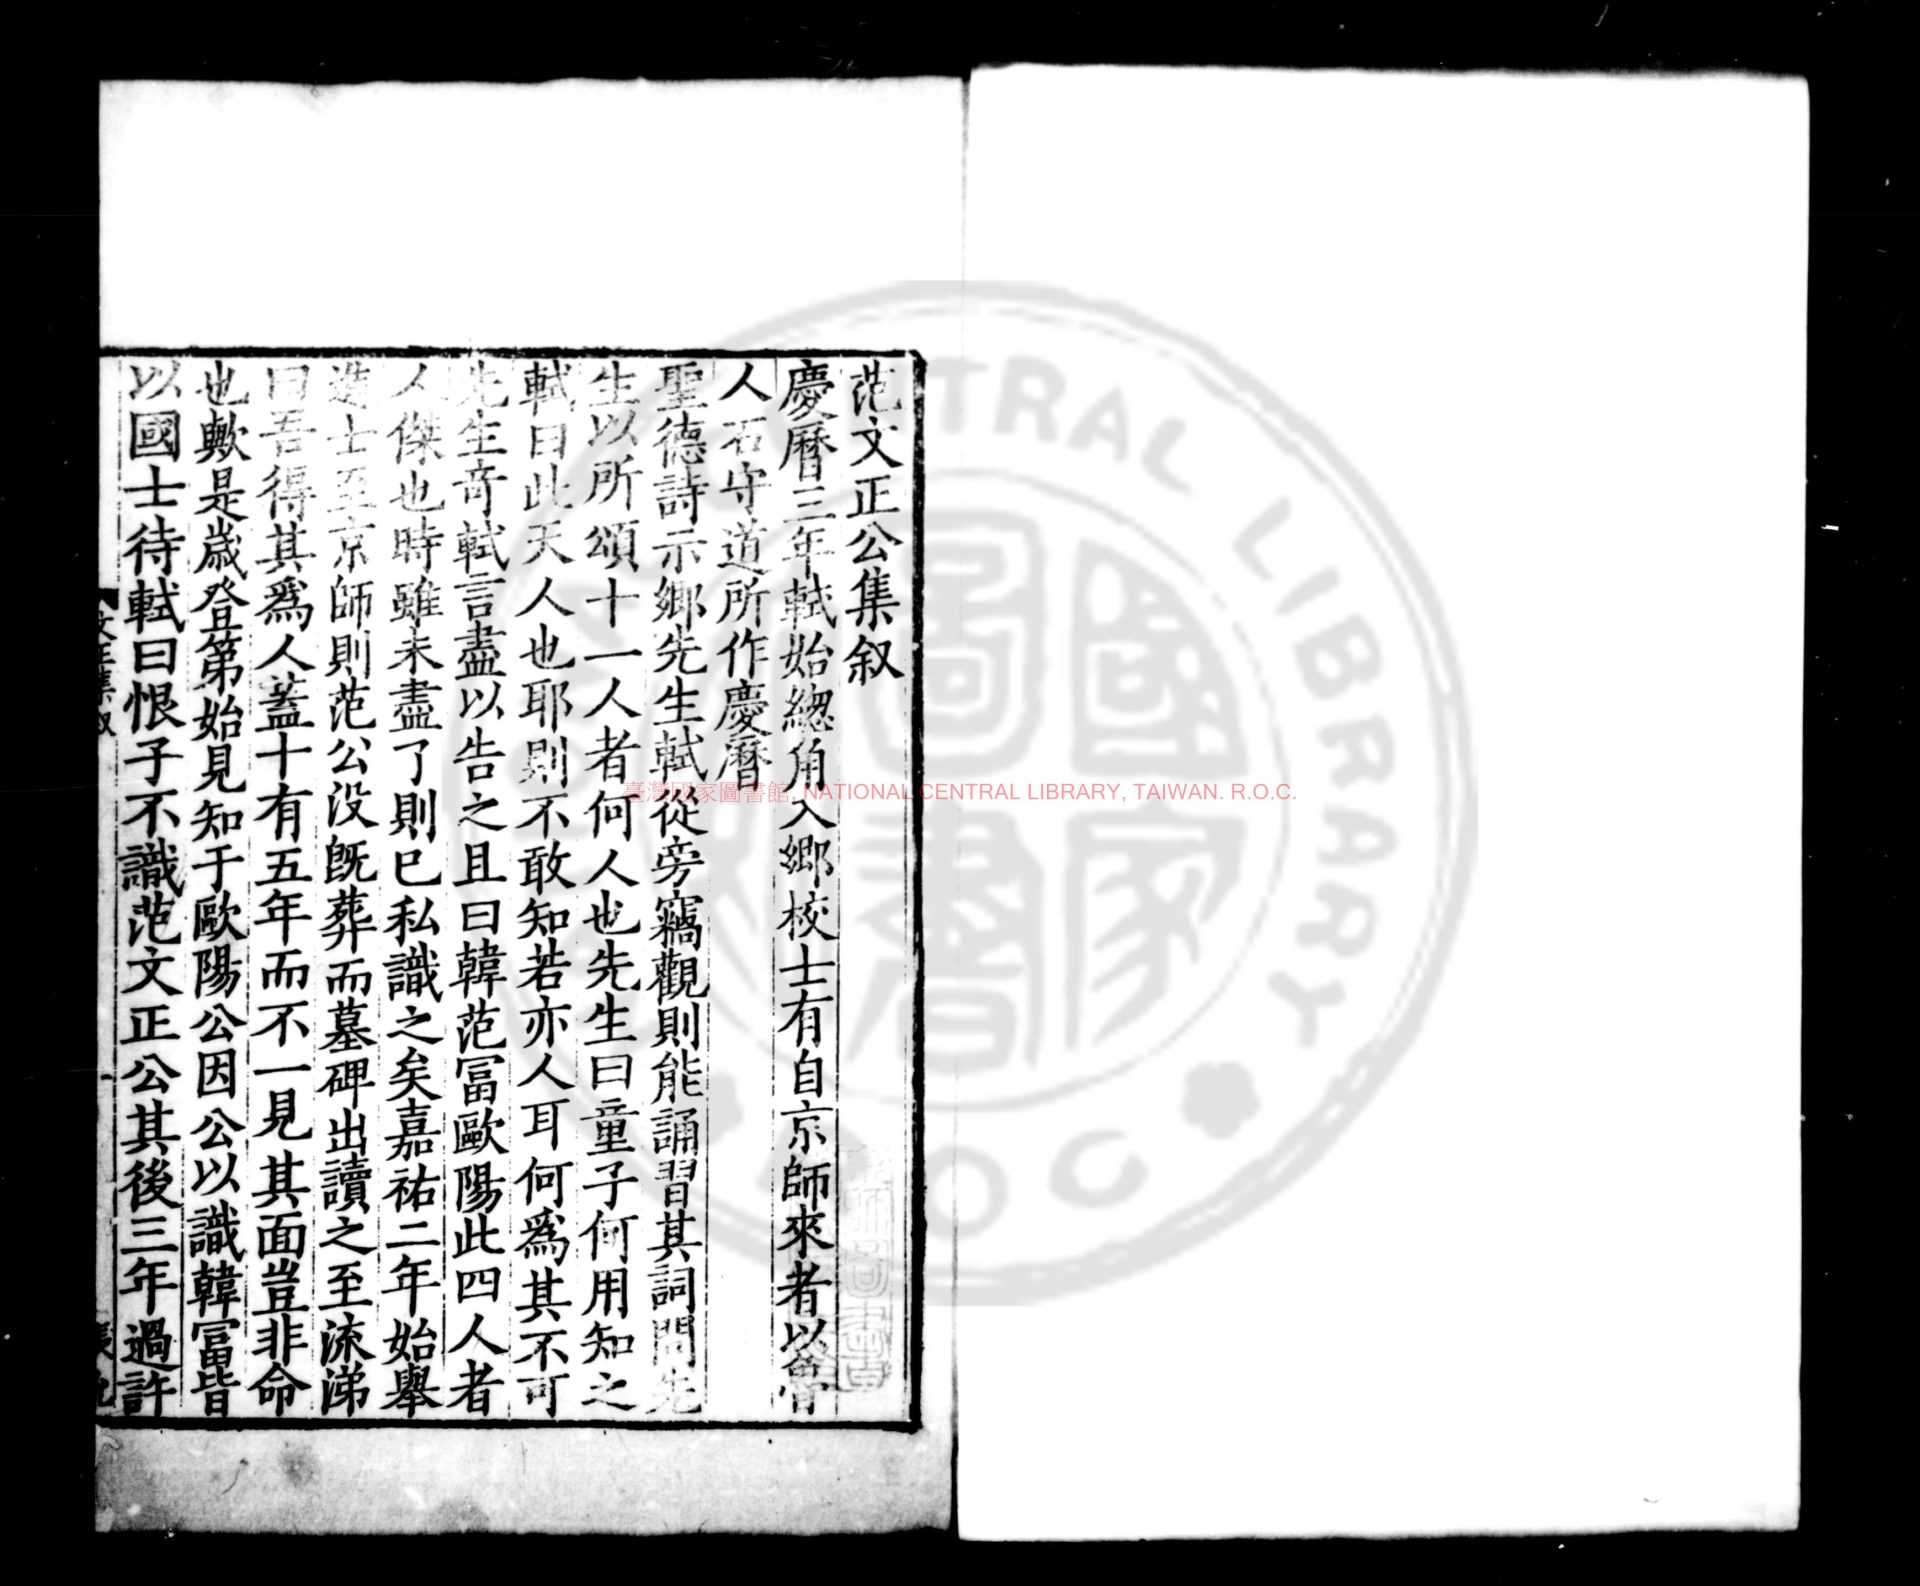 范文正公集叙
慶曆三年軾始緫角入鄉校士有自京師來者以魯
人石守道所作慶曆
聖德詩示鄉先生軾從旁竊觀則能誦習其詞問先
生以所頌十一人者何人也先生曰童子何用知之
軾曰此天人也耶則不敢知若亦人耳何爲其不可
先生奇軾言盡以告之且曰韓范冨歐陽此四人者
人傑也時雖未盡了則已私識之矣嘉祐二年始舉
進士至京師則范公沒旣葬而墓碑出讀之至流涕
曰吾得其爲人蓋十有五年而不一見其面豈非命
也歟是歲登第始見知于歐陽公因公以識韓冨皆
以國士待軾曰恨子不識范文正公其後三年過許
文正集叙
一
臺灣國家圖書館, NATIONAL CENTRAL LIBRARY, TAIWAN. R.O.C.
CENTRAL LIBRARY
R O C
國家圖書